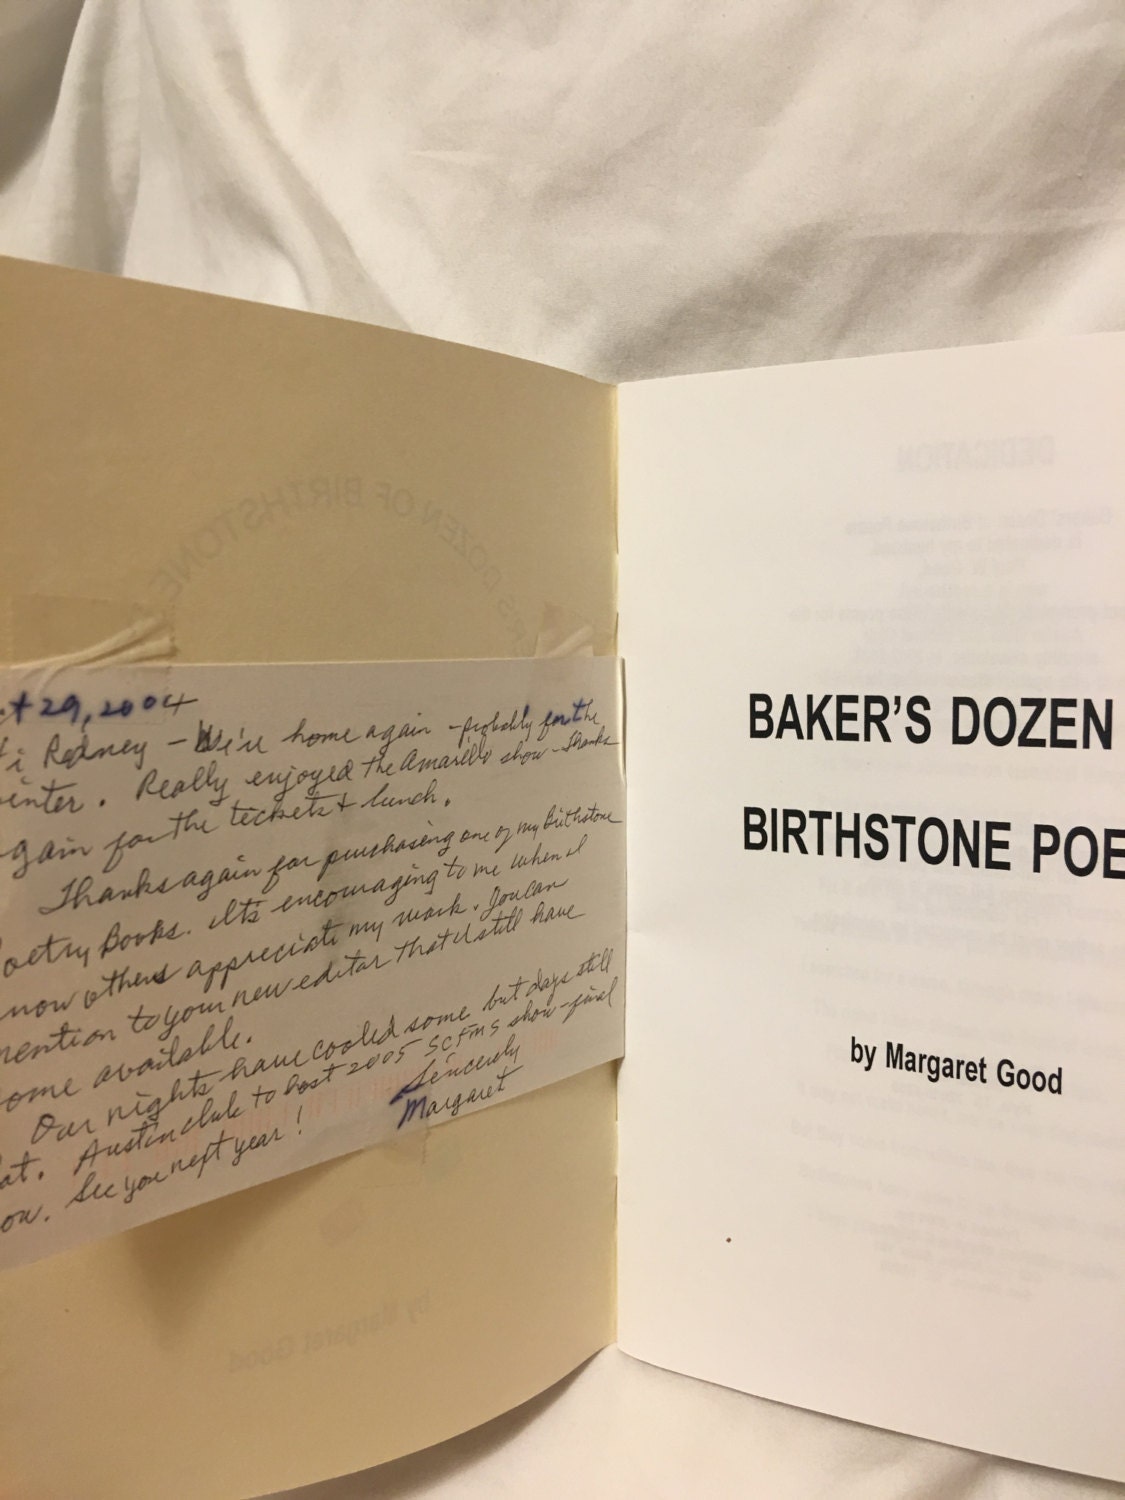 t 29, 2004
i Rodney - We're home again - probably for the
inter. Really enjoyed the Amarillo show - Thanks
gain for the tickets + lunch.
Thanks again for purchasing one of my Birthstone
oetry Books. It's encouraging to me when I
now others appreciate my work. You can
ention to your new editor that I still have
ome available.
Our nights have cooled some but days still
at. Austin club to host 2005 SCFMS show - final
ow. See you next year!
Sincerely
Margaret
BAKER'S DOZEN
BIRTHSTONE POE
by Margaret Good
DEDICATION
DOZEN OF BIRTHSTONE
by Margaret Good